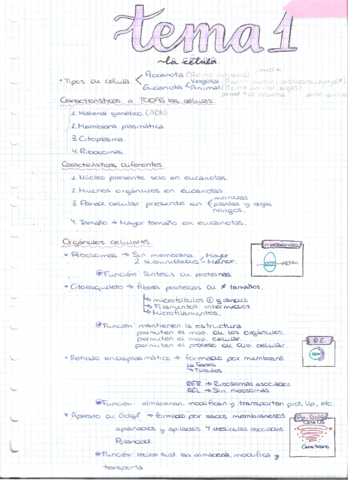 tema 1
la célula.
• Tipos de célula
Procariota (Reino monera)
Eucariota
Vegetal
Animal
Características a TODAS las células.
1. Material genético (ADN)
2. Membrana plasmática
3. Citoplasma
4. Ribosomas
Características diferentes
1. Núcleo presente solo en eucariotas.
2. Muchos orgánulos en eucariotas
3. Pared celular presente en
moneras
plantas y algas
hongos.
4. Tamaño → Mayor tamaño en eucariotas.
Orgánulos celulares.
• Ribosomas → Sin membrana.
2 subunidades
Mayor
Menor.
Función Síntesis de proteínas.
ribosomas
• Citoesqueleto → fibras proteicas de ≠ tamaños.
microtúbulos
Filamentos intermedios
Microfilamentos.
Función mantienen la estructura
permiten el mov. de los orgánulos.
permiten el mov. celular
permiten el proceso de división celular
• Retículo endoplasmático → formado por membrana
Sacos
Túbulos
RER → Ribosomas asociados
REL → Sin ribosomas.
Función: almacenan, modifican y transportan prot, lip, etc.
• Aparato de Golgi → formado por sacos membranosos
aplanados y apilados y vesículas asociadas
Polaridad.
Función: recibe sust. las almacena, modifica y
transporta
Ap. Golgi
Cara cis
Cara trans